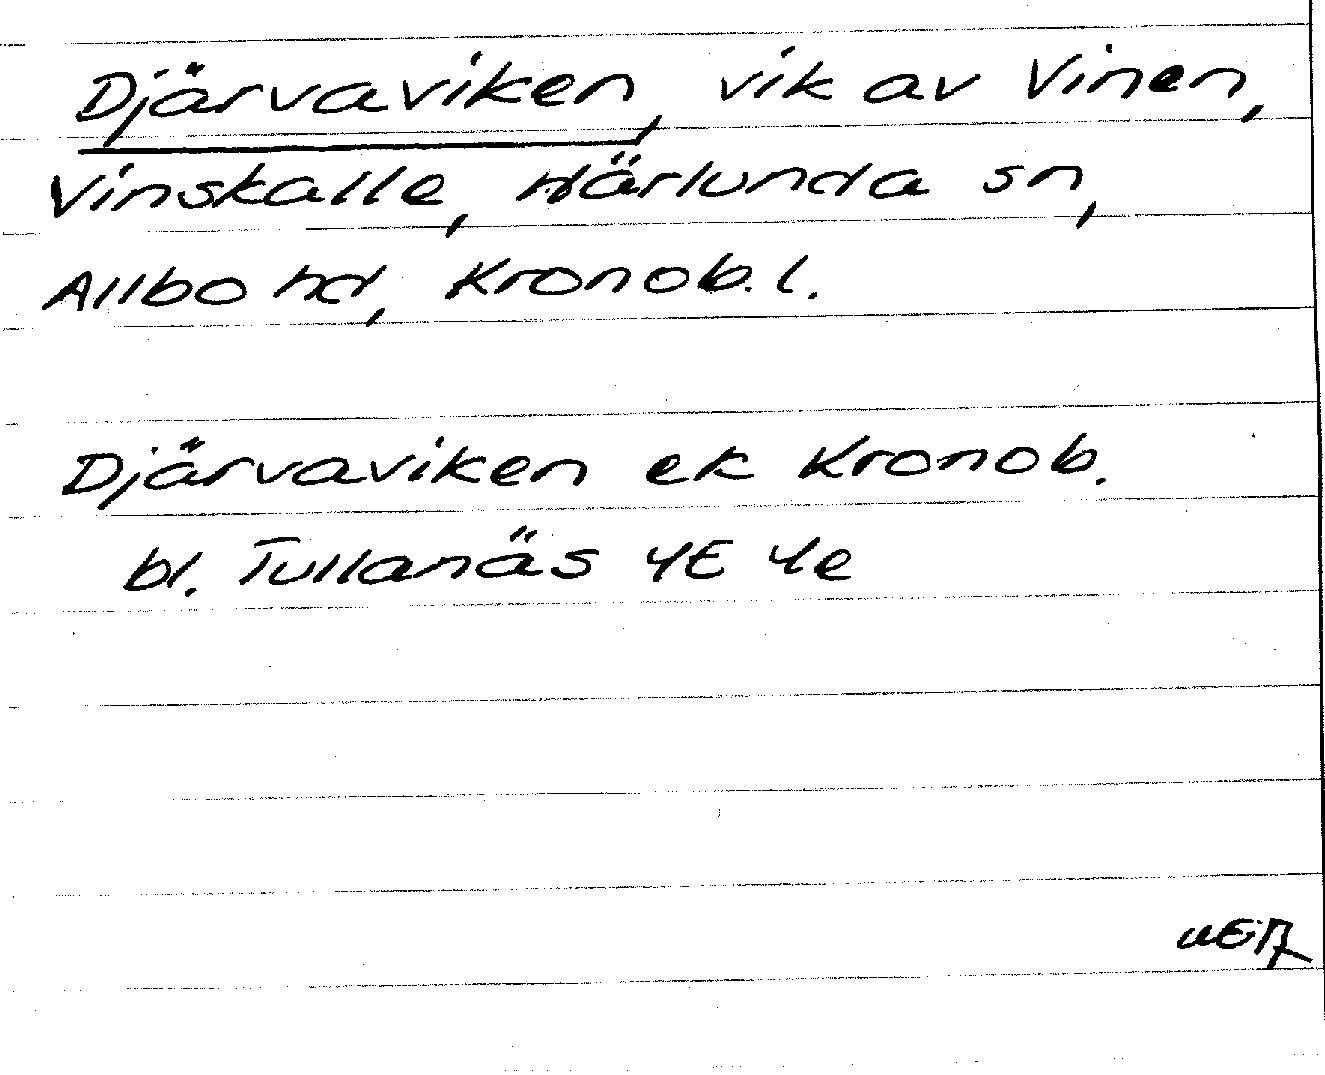 Djärvaviken, vik av Vinen,
Vinskalle, Härlunda sn,
Allbo hd, Kronob. l.
Djärvaviken ek Kronob.
bl. Tullanäs 4E 4e